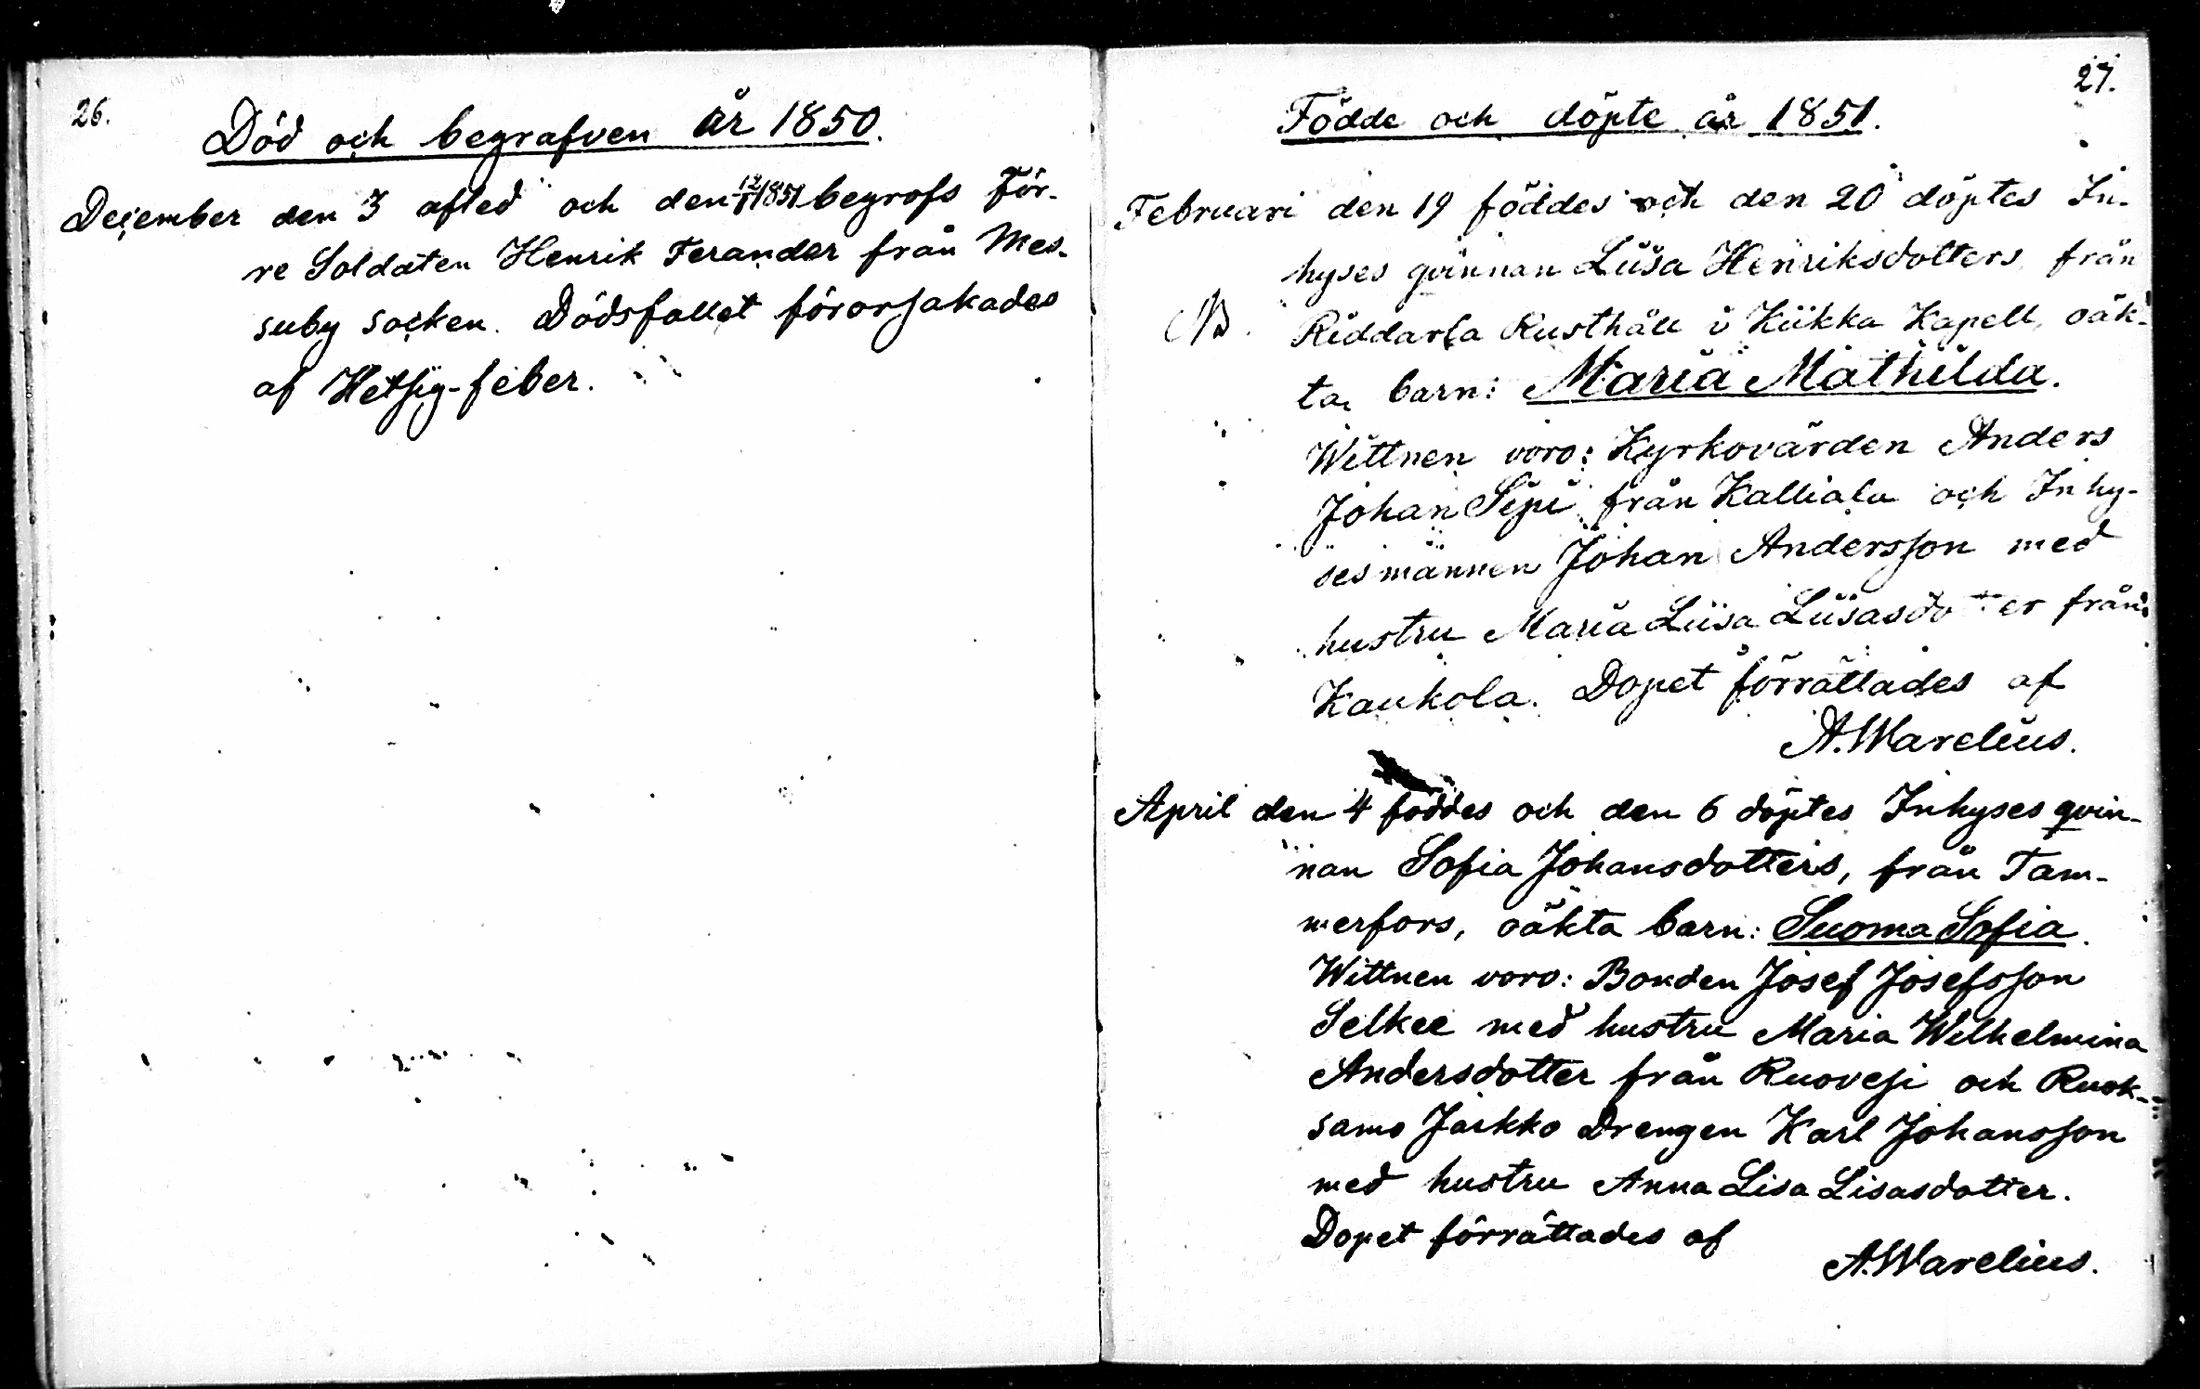 26.
Död och begrafven år 1850.
December den 3 afled och den 12/1 1851 begrofs För-
re Soldaten Henrik Ferander från Mes-
suby socken. Dödsfallet förorsakades
af Hetsig-feber.
27.
Födde och döpte år 1851.
Februari den 19 föddes och den 20 döptes In-
hyses qvinnan Liisa Henriksdotters från
NB. Riddarla Rusthåll i Kiikka Kapell, oäk-
ta barn: Maria Mathilda.
Wittnen voro: Kyrkovärden Anders
Johan Sipi från Kalliala och Inhy-
ses männen Johan Andersson med
hustru Maria Liisa Liisasdotter från
Kaukola. Dopet förrättades af
A. Warelius.
April den 4 föddes och den 6 döptes Inhyses qvin-
nan Sofia Johansdotters, från Tam-
merfors, oäkta barn: Suoma Sofia.
Wittnen voro: Bonden Josef Josefsson
Selkee med hustru Maria Wilhelmina
Andersdotter från Ruovesi och Ruok-
samo Jaikko Drengen Karl Johansson
med hustru Anna Lisa Lisasdotter.
Dopet förrättades af
A. Warelius.